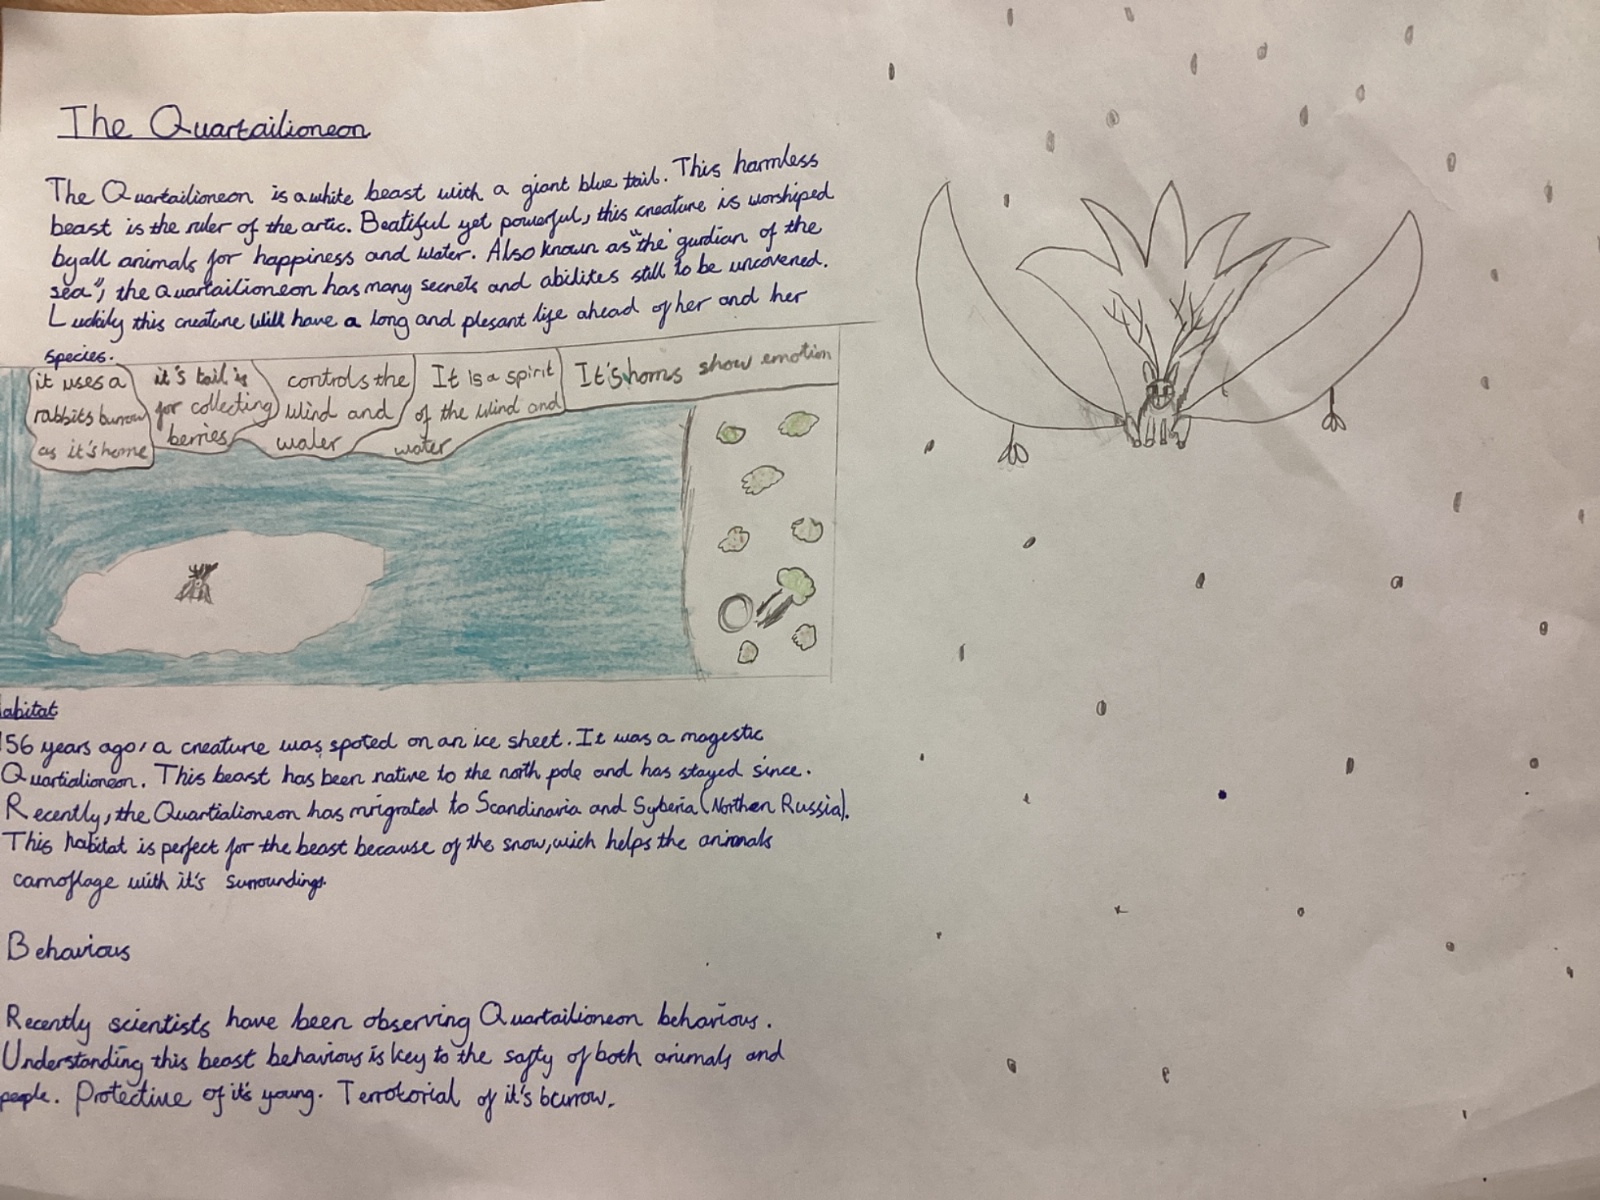 The Quartailioneon
The Quartailioneon is a white beast with a giant blue tail. This harmless
beast is the ruler of the artic. Beatiful yet powerful, this creature is worshiped
by all animals for happiness and water. Also known as "the gurdian of the
sea", the Quartailioneon has many secrets and abilites still to be uncovered.
Luckily this creature will have a long and plesant life ahead of her and her
species.
it uses a
rabbits burrow
as it's home
it's tail is
for collecting
berries
controls the
wind and
water
It is a spirit
of the wind and
water
It's horns show emotion
abitat
156 years ago, a creature was spoted on an ice sheet. It was a magestic
Quartialioneon. This beast has been native to the north pole and has stayed since.
Recently, the Quartialioneon has mrigrated to Scandinavia and Syberia (Northen Russia).
This habitat is perfect for the beast because of the snow, wich helps the animals
camoflage with it's surroundings.
Behavious
Recently scientists have been observing Quartailioneon behavious.
Understanding this beast behavious is key to the safty of both animals and
people. Protective of it's young. Terrotorial of it's burrow.